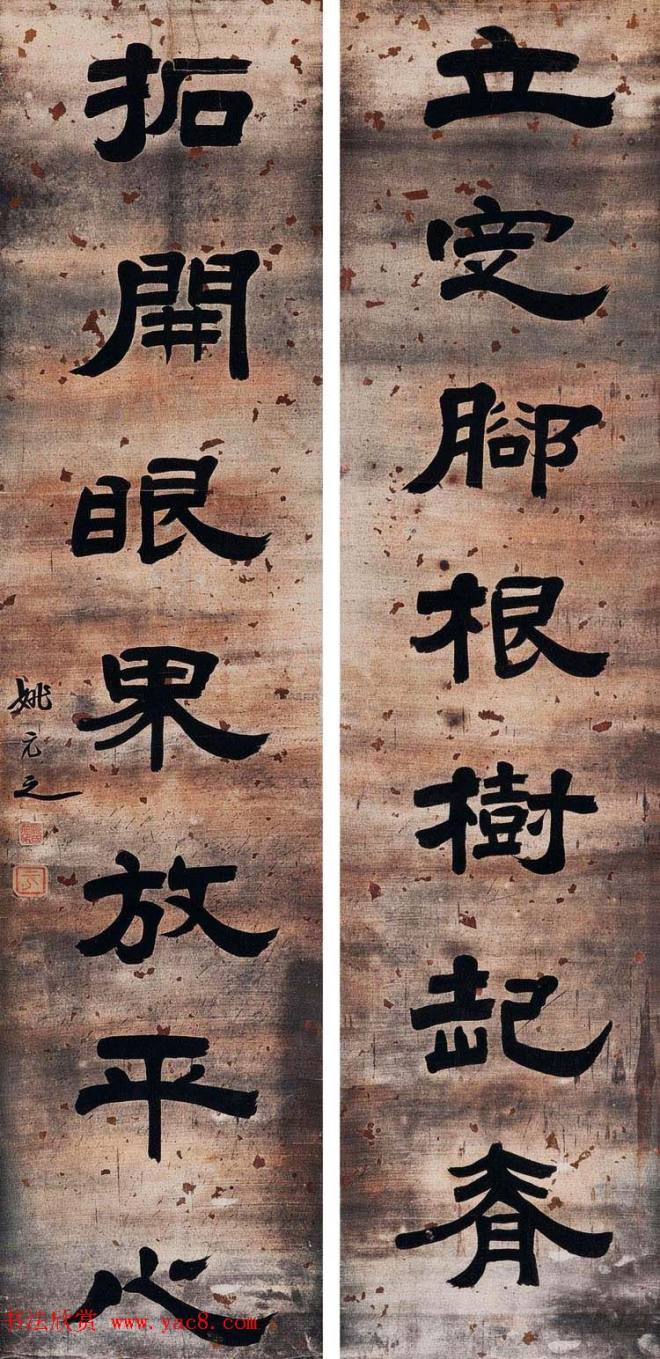 立定腳根樹起脊
拓開眼界放平心
姚元之
书法欣赏 www.yac8.com